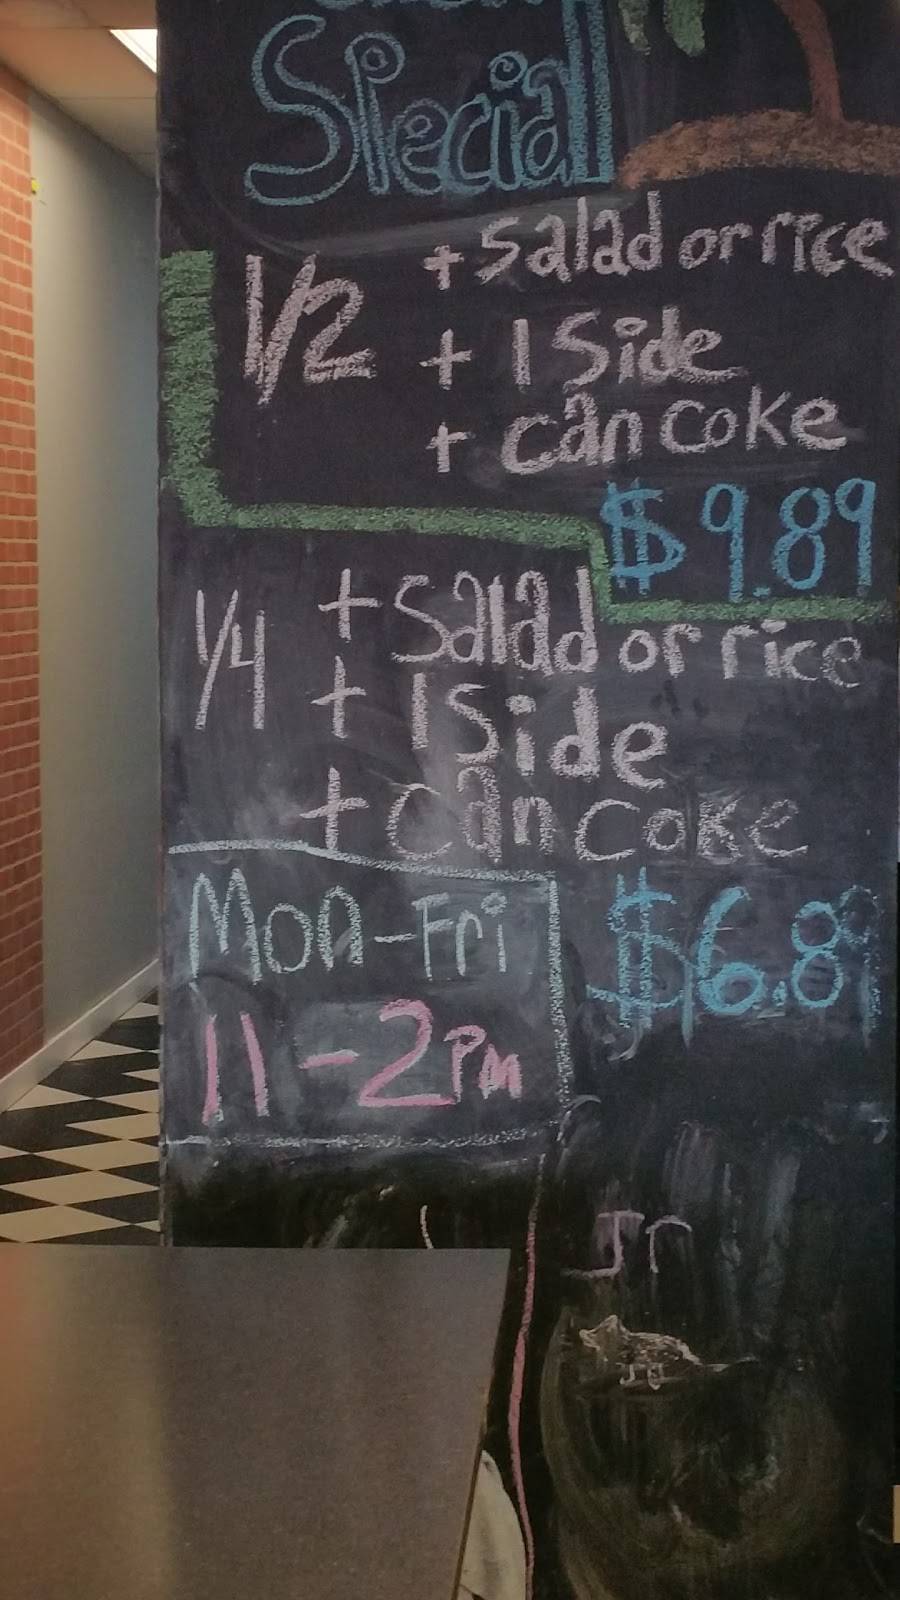 Special
1/2 + salad or rice
+ 1 Side
+ can coke
$9.89
1/4 + Salad or rice
+ 1 Side
+ can coke
$6.89
Mon-Fri
11-2pm
Jr